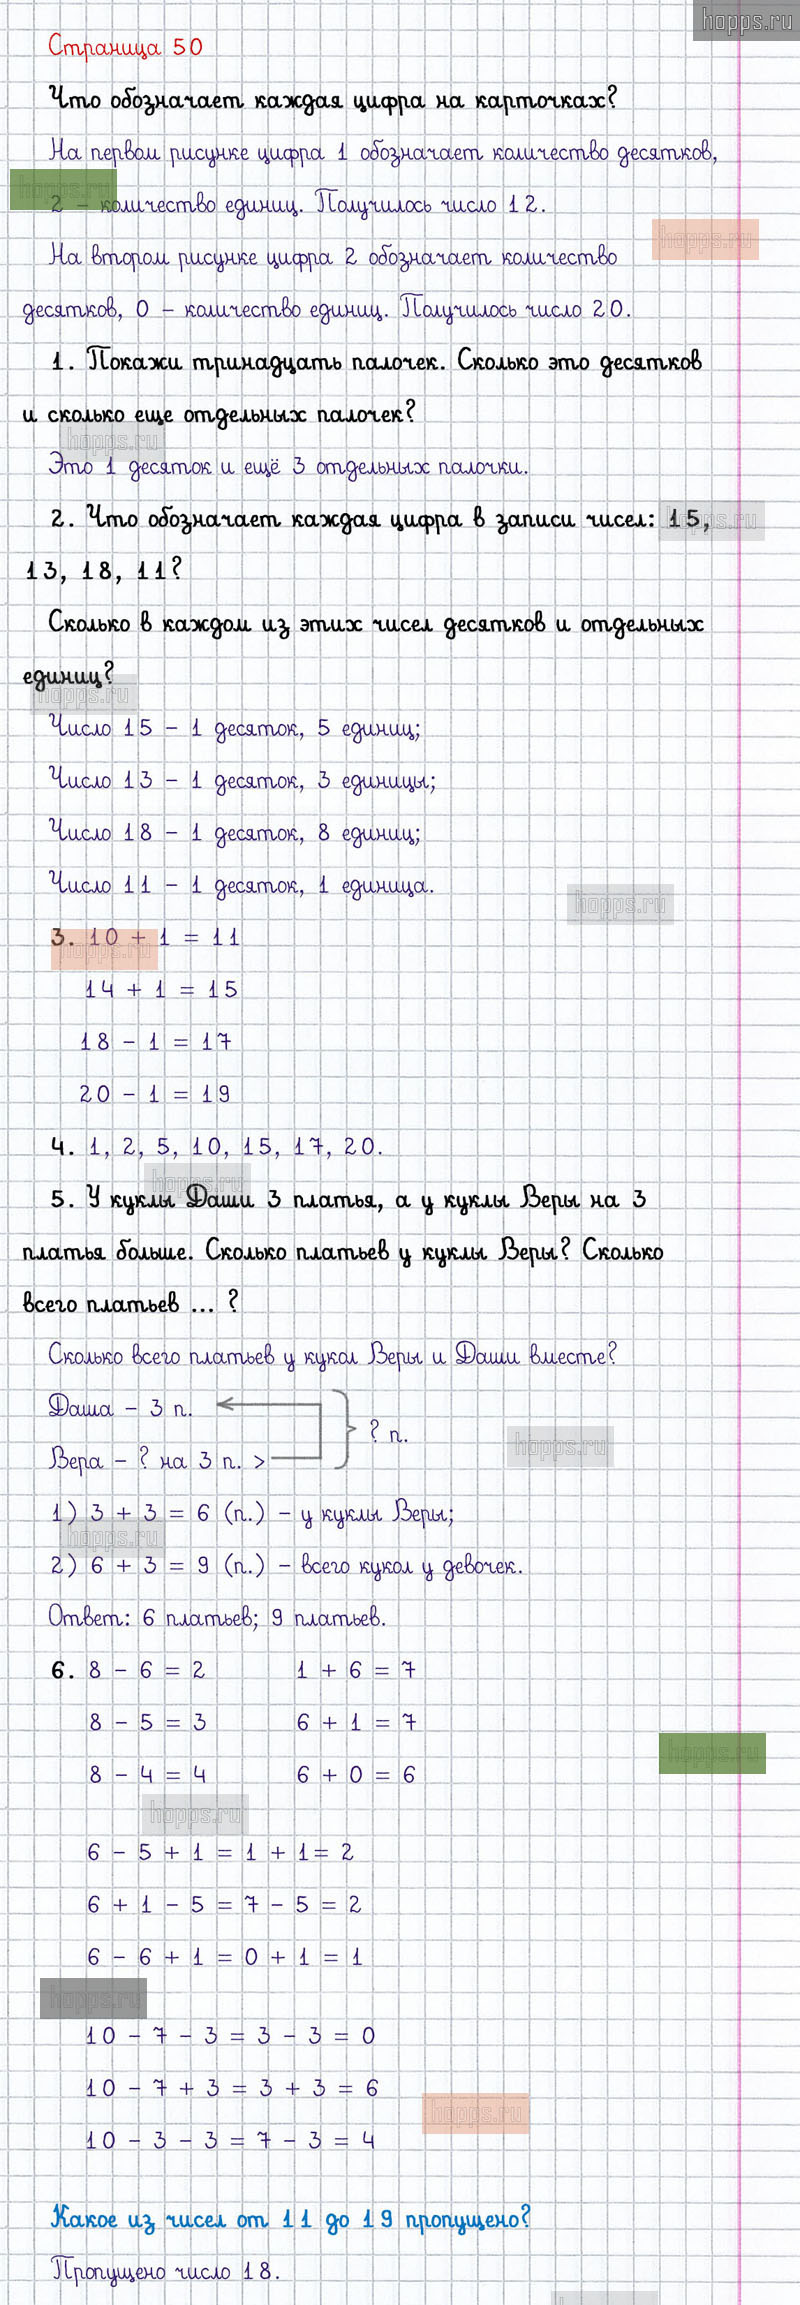 hopps.ru
Страница 50
Что обозначает каждая цифра на карточках?
На первом рисунке цифра 1 обозначает количество десятков,
hopps.ru
2 – количество единиц. Получилось число 12.
hopps.ru
На втором рисунке цифра 2 обозначает количество
десятков, 0 – количество единиц. Получилось число 20.
1. Покажи тринадцать палочек. Сколько это десятков
и сколько еще отдельных палочек?
hopps.ru
Это 1 десяток и ещё 3 отдельных палочки.
2. Что обозначает каждая цифра в записи чисел: 15,
hopps.ru
13, 18, 11?
Сколько в каждом из этих чисел десятков и отдельных
единиц?
hopps.ru
Число 15 – 1 десяток, 5 единиц;
Число 13 – 1 десяток, 3 единицы;
Число 18 – 1 десяток, 8 единиц;
Число 11 – 1 десяток, 1 единица.
hopps.ru
3. 10 + 1 = 11
hopps.ru
14 + 1 = 15
18 – 1 = 17
20 – 1 = 19
4. 1, 2, 5, 10, 15, 17, 20.
hopps.ru
5. У куклы Даши 3 платья, а у куклы Веры на 3
платья больше. Сколько платьев у куклы Веры? Сколько
всего платьев ... ?
Сколько всего платьев у кукол Веры и Даши вместе?
Даша – 3 п.
? п.
hopps.ru
Вера – ? на 3 п. >
1) 3 + 3 = 6 (п.) – у куклы Веры;
hopps.ru
2) 6 + 3 = 9 (п.) – всего кукол у девочек.
Ответ: 6 платьев; 9 платьев.
6. 8 – 6 = 2 1 + 6 = 7
8 – 5 = 3 6 + 1 = 7
hopps.ru
8 – 4 = 4 6 + 0 = 6
hopps.ru
6 – 5 + 1 = 1 + 1 = 2
6 + 1 – 5 = 7 – 5 = 2
6 – 6 + 1 = 0 + 1 = 1
hopps.ru
10 – 7 – 3 = 3 – 3 = 0
10 – 7 + 3 = 3 + 3 = 6
hopps.ru
10 – 3 – 3 = 7 – 3 = 4
Какое из чисел от 11 до 19 пропущено?
Пропущено число 18.